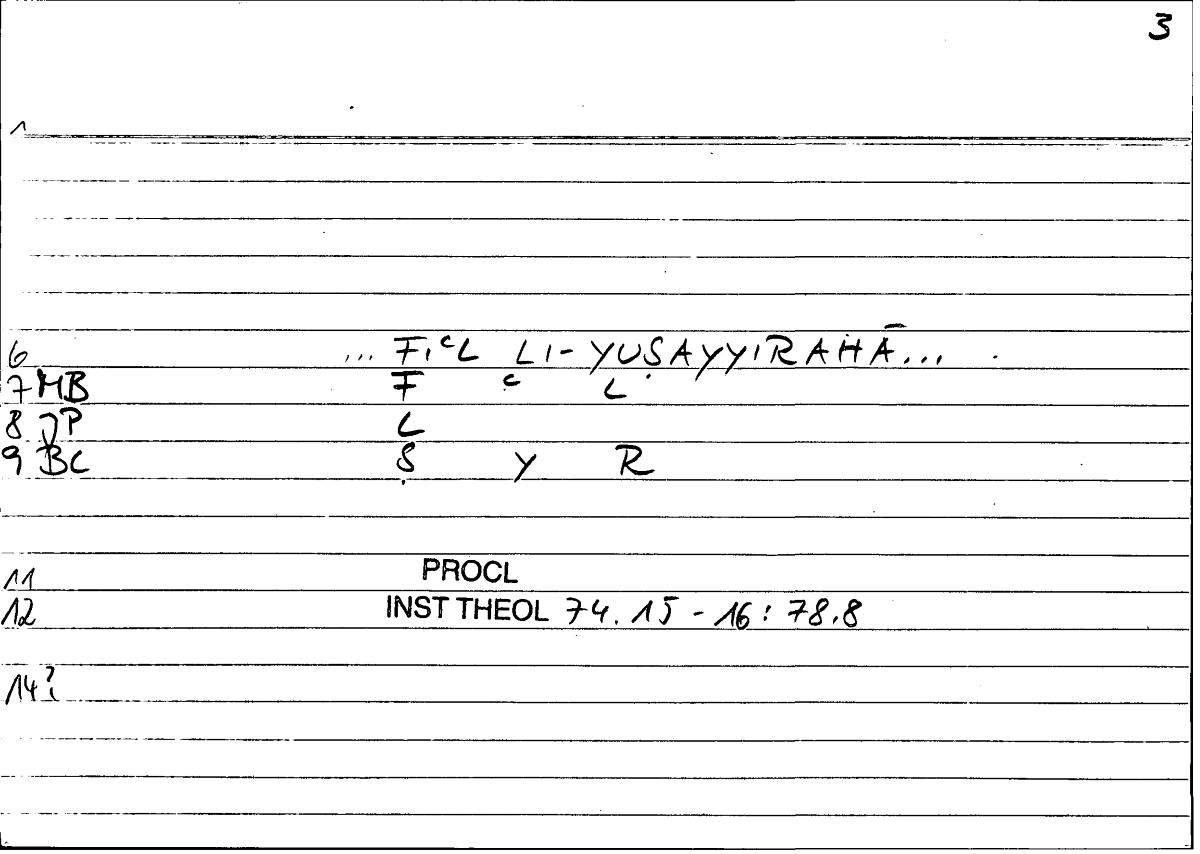 3
1
6 ... FIᶜL LI-YUṢAYYIRAHĀ...
7 MB F ᶜ L
8 JP L
9 BC Ṣ Y R
11 PROCL
12 INST THEOL 74.15-16: 78.8
14?